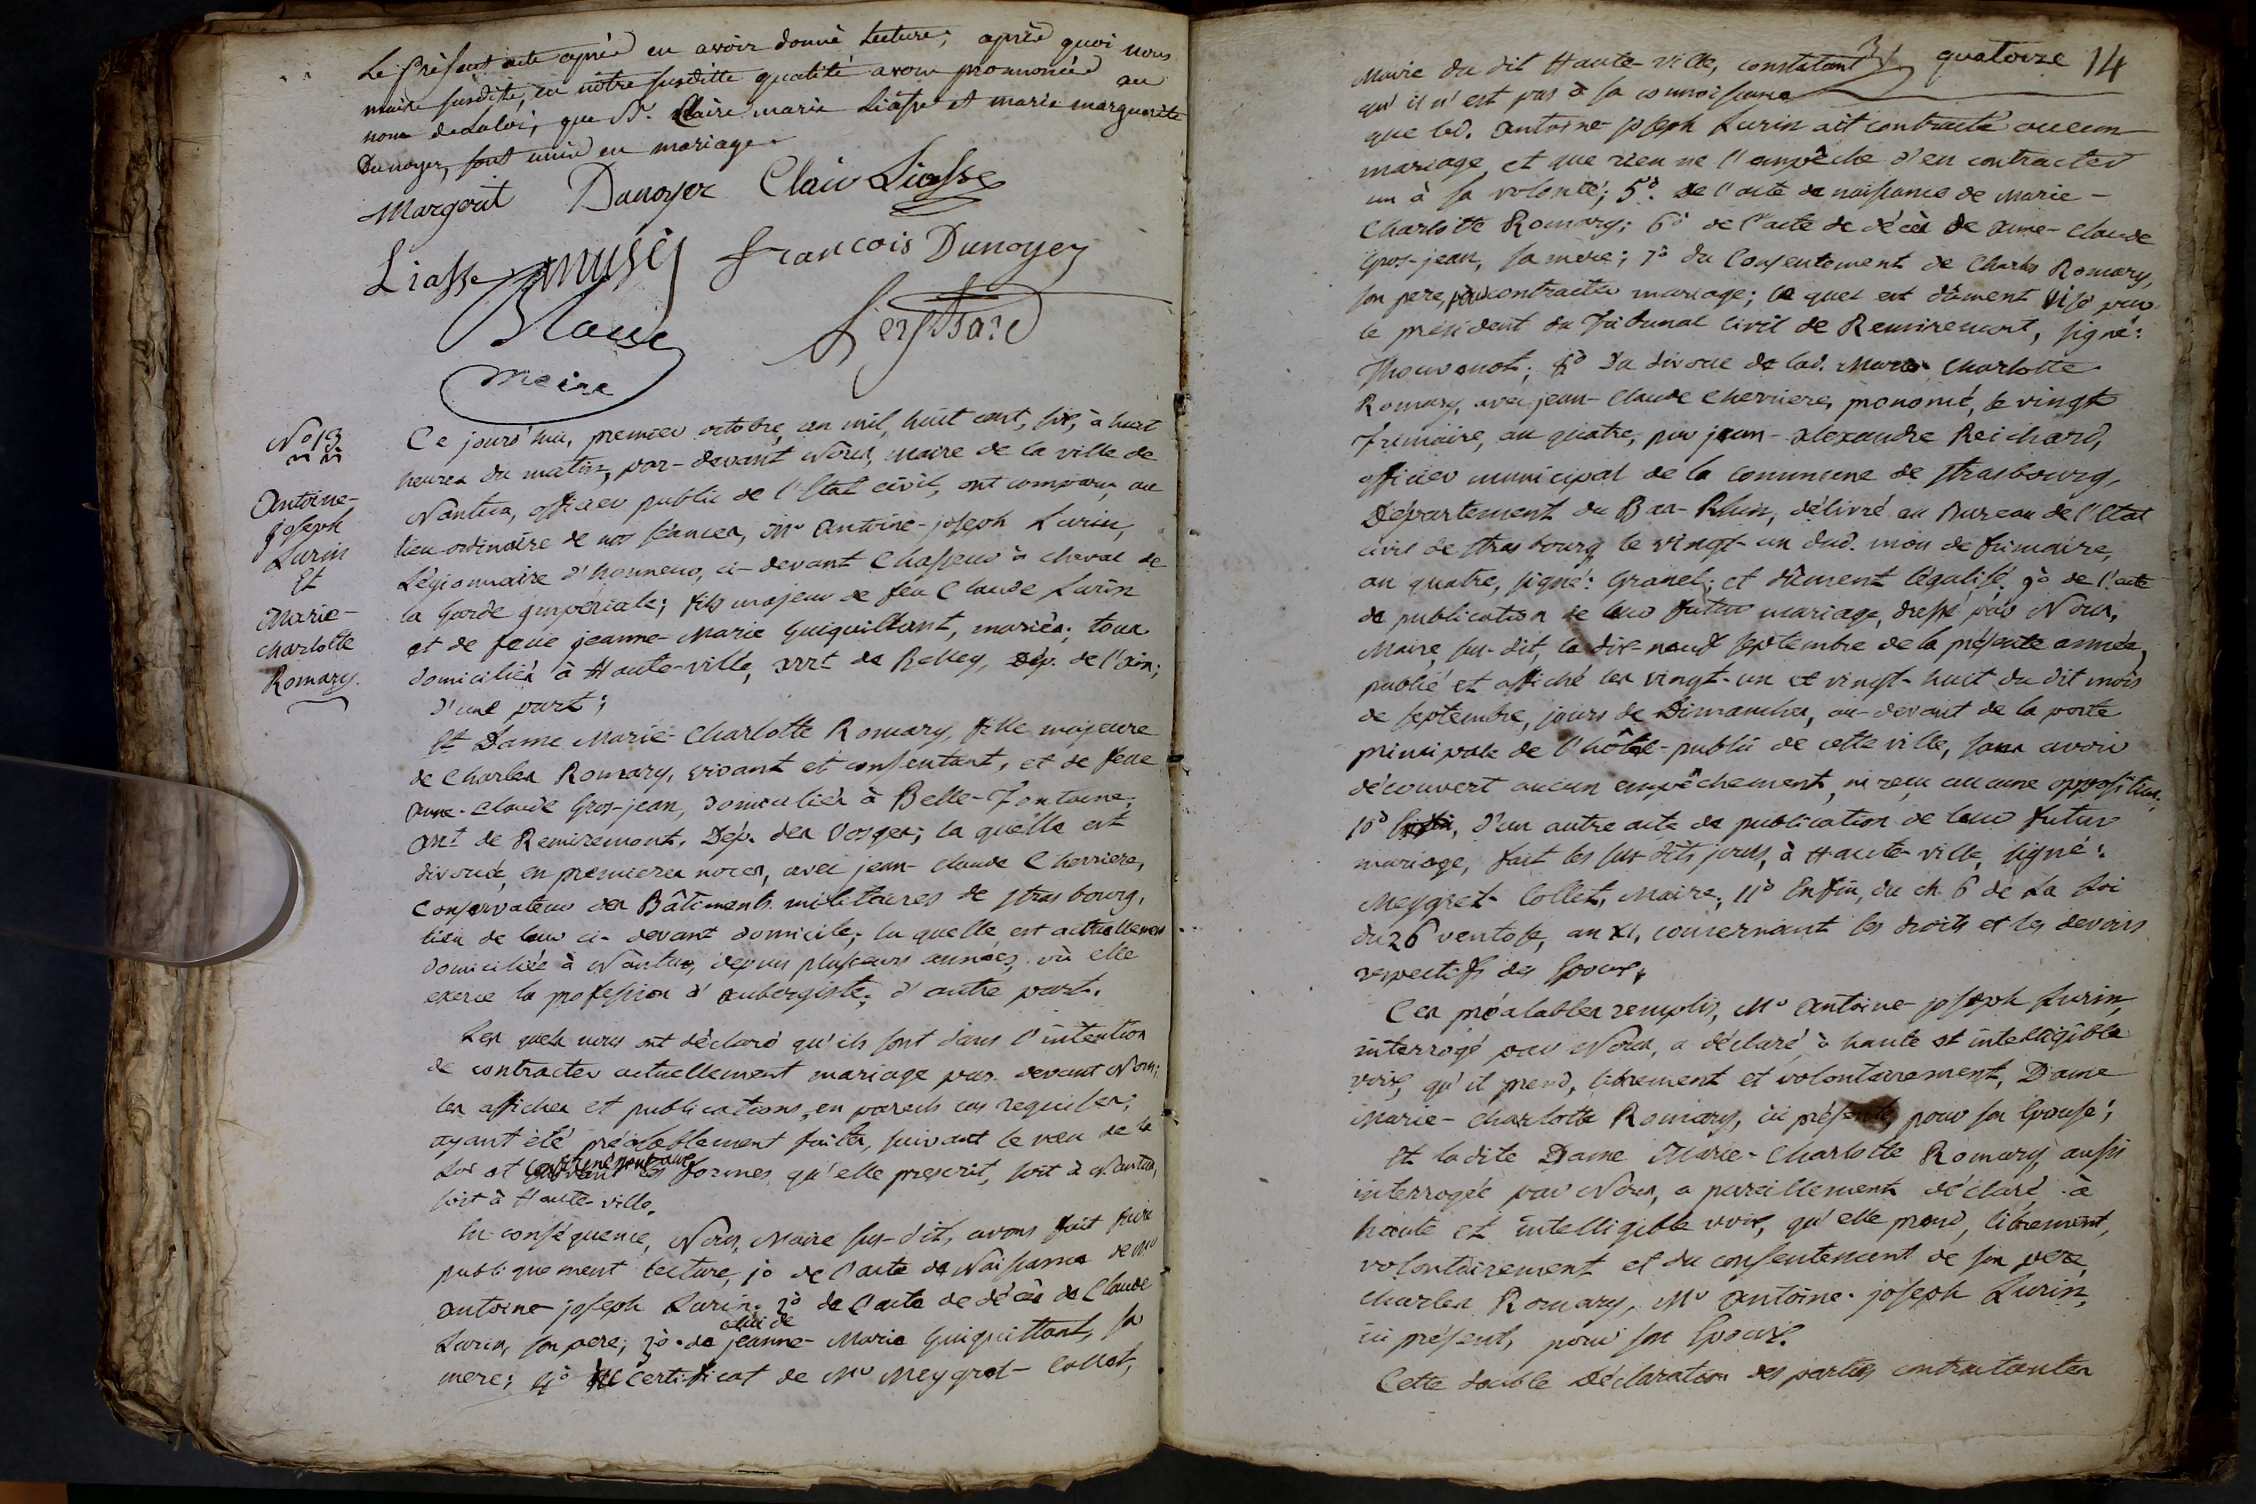 Le présent acte après en avoir donné lecture; après quoi nous
maire susdite, en nôtre susditte qualité avons prononcé au
nom de la loi, que Sr. Claire marie Liasse et marie marguerite
Dunoyer, sont unis en mariage.
Margerit Dunoyer Clair Liasse
Liasse françois Dunoyer
maire
No 13
Antoine-
Joseph
Lurin
Et
Marie-
charlotte
Romary.
Ce jourd'hui, premier octobre, an mil, huit cent, six, à huit
heures du matin, par-devant Nous, maire de la ville de
Nantua, officier public de l'Etat civil, ont comparu, au
lieu ordinaire de nos séances, Mr antoine-joseph Lurin,
Légionnaire d'honneur, ci-devant Chasseur à cheval de
la Garde impériale; fils majeur de feu Claude Lurin
et de feue jeanne-Marie Guiguittant, mariés; tous
domiciliés à Haute-ville, arrt de Belley, Dép. de l'ain;
d'une part;
Et Dame Marie-Charlotte Romary, fille majeure
de Charles Romary, vivant et consentant, et de feue
anne-Claude Gros-jean, domiciliés à Belle-Fontaine;
arrt de Remiremont, Dép. des Vosges; la quelle est
divorcée, en premieres noces, avec jean-claude Cherriere,
Conservateur des Bâtiments militaires de strasbourg,
lieu de leur ci-devant domicile; la quelle est actuellement
domiciliée à Nantua, depuis plusieurs années, où elle
exerce la profession d'aubergiste; d'autre part.
Les quels nous ont déclaré qu'ils sont dans l'intention
de contracter actuellement mariage par devant Nous;
les affiches et publications, en pareils cas requises,
ayant été préalablement faites, suivant le vœu de la
Loi et conformément aux formes qu'elle prescrit, soit à Nantua,
soit à Haute-ville.
En conséquence, Nous, Maire sus-dit, avons fait faire
publiquement lecture, 1o de l'acte de Naissance de Mr
antoine-joseph Lurin; 2o de l'acte de décès de Claude
Lurin, son pere; 3o de celui de jeanne-Marie Guiguittant, sa
mere; 4o certificat de Mr Meygret-Collet,
quatorze 14
Maire du dit Haute-ville, constatant
qu'il n'est pas à sa connoissance
que led. antoine-joseph Lurin ait contracté aucun
mariage, et que rien ne l'empêche d'en contracter
un à sa volonté; 5o. de l'acte de naissance de Marie-
Charlotte Romary; 6o de l'acte de décès de anne-Claude
Gros-jean, sa mère; 7o du Consentement de Charles Romary,
son pere, pour contracter mariage; le quel est dûment visé par
le président du Tribunal Civil de Remiremont, signé:
Thouvenot; 8o Du divorce de lad. Marie Charlotte
Romary, avec jean-Claude Cherriere, prononcé, le vingt
frimaire, an quatre, par jean-alexandre Reichard,
officier municipal de la commune de strasbourg,
Département du Bas-Rhin, délivré au Bureau de l'Etat
civil de strasbourg le vingt-un dud. mois de frimaire,
an quatre, signé: Granel; et dûment légalisé; 9o de l'acte
de publication de leur futur mariage, dressé par Nous,
Maire, sus-dit, le dix-neuf septembre de la présente année,
publié et affiché les vingt-un et vingt-huit du dit mois
de septembre, jours de Dimanches, au-devant de la porte
principale de l'hôtel-public de cette ville, sans avoir
découvert aucun empêchement, ni reçu aucune opposition;
10o d'un autre acte de publication de leur futur
mariage, fait les sus-dits jours, à Haute-ville, signé:
Meygret-Collet, Maire; 11o Enfin, du ch. 6 de La Loi
du 26 ventose, an XI, concernant les droits et les devoirs
respectifs des Epoux.
Ces préalables remplis, Mr antoine-joseph Lurin,
interrogé par Nous, a déclaré, à haute et intelligible
voix, qu'il prend, librement et volontairement, Dame
Marie-Charlotte Romary, ici présente, pour son Epouse;
Et ladite Dame Marie-Charlotte Romary, aussi
interrogée par Nous, a pareillement déclaré à
haute et intelligible voix, qu'elle prend, librement,
volontairement et du consentement de son pere,
Charles Romary, Mr antoine-joseph Lurin,
ici présent, pour son Epoux.
Cette double Déclaration des parties contractantes